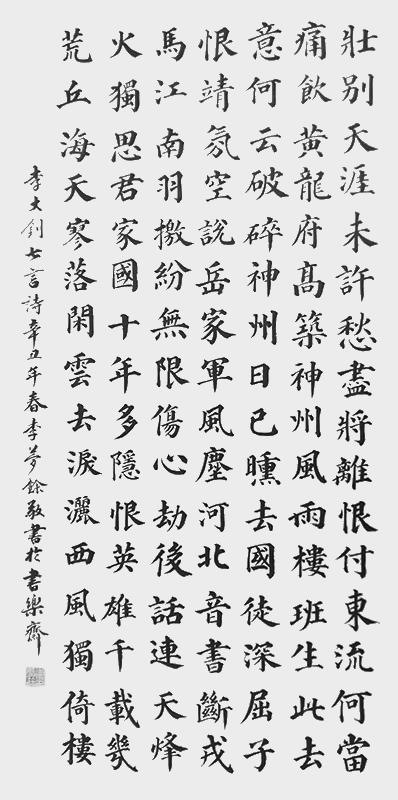 壯別天涯未許愁盡將離恨付東流何當
痛飲黃龍府高築神州風雨樓班生此去
意何云破碎神州日已曛去國徒深屈子
恨靖氛空說岳家軍風塵河北音書斷戎
馬江南羽檄紛無限傷心劫後話連天烽
火獨思君家國十年多隱恨英雄千載幾
荒丘海天寥落閑雲去淚灑西風獨倚樓
李大釗七言詩辛丑年春李夢餘敬書於書樂齋